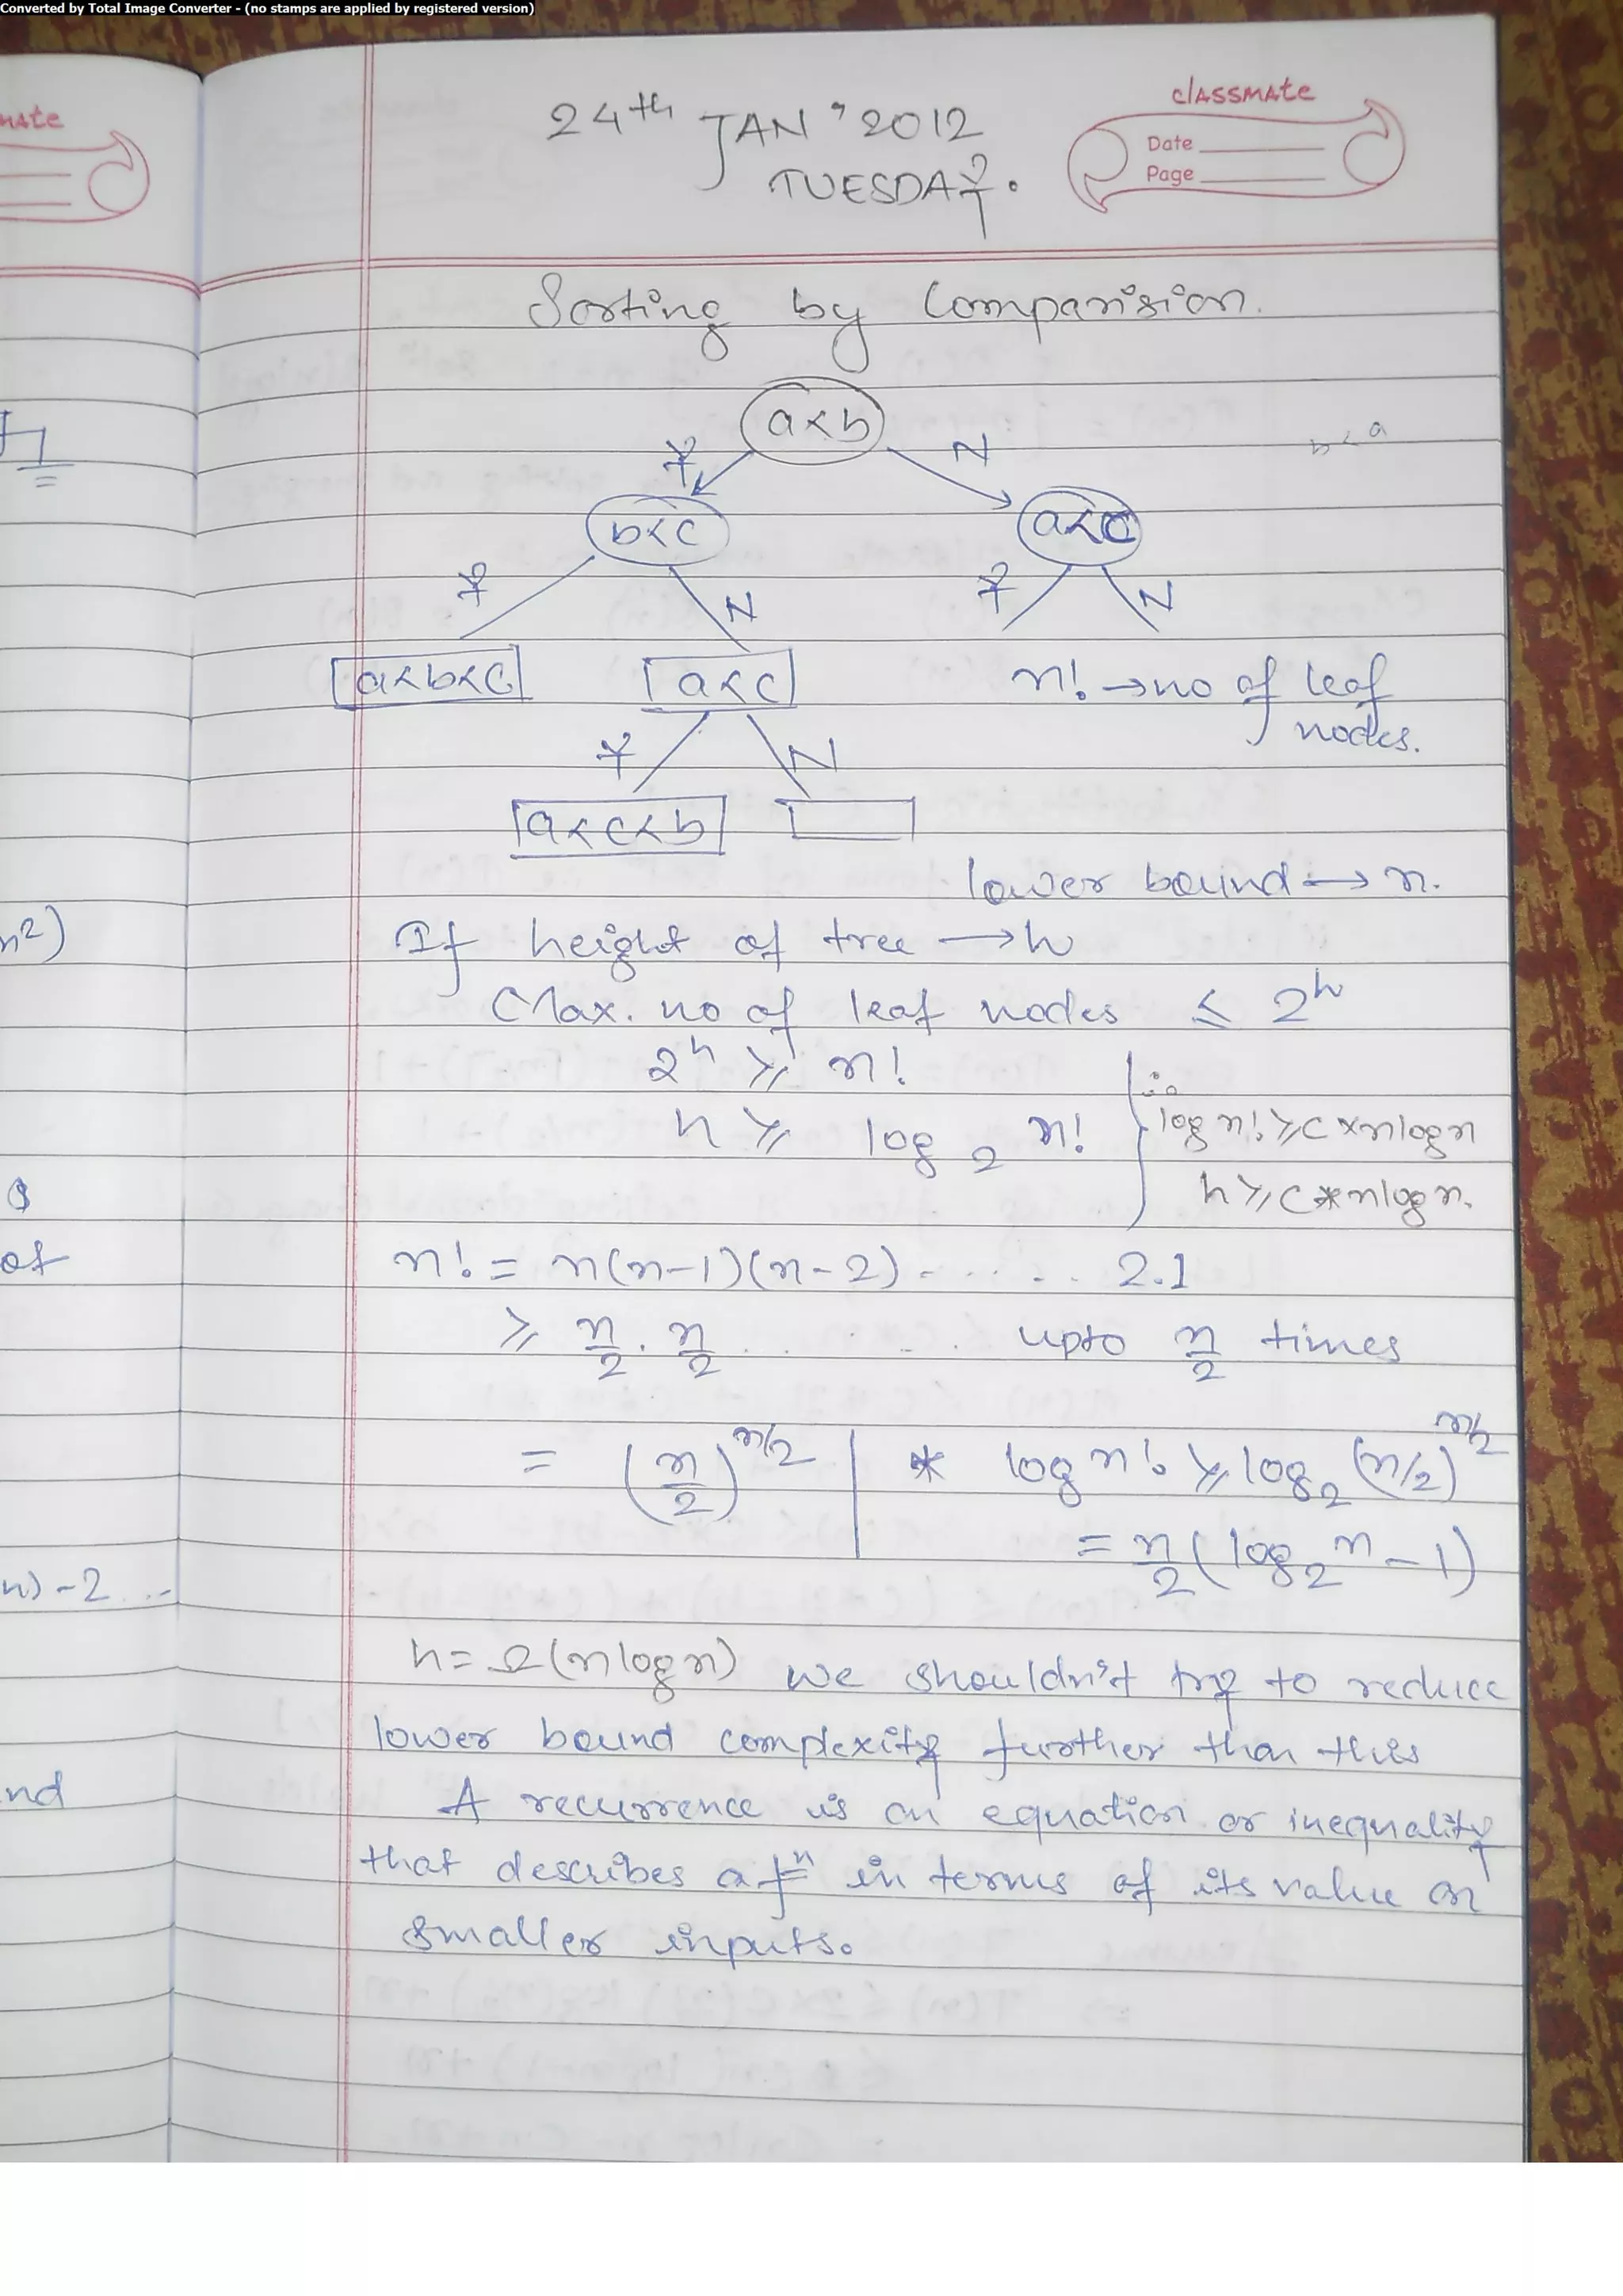 Converted by Total Image Converter - (no stamps are applied by registered version)
24th JAN '2012
TUESDAY.
classmate
Date
Page
Sorting by Comparision.
a<b
Y N
b<a
b<c a<c
Y N Y N
a<b<c a<c n! → no of leaf
nodes.
Y N
a<c<b
lower bound → n.
If height of tree → h
Max. no of leaf nodes ≤ 2^h
2^h ≥ n!
h ≥ log₂ n!
∴
log n! ≥ c×nlogn
h ≥ c*nlogn.
n! = n(n-1)(n-2) - . . . . 2.1
≥ n/2 . n/2 . . . . . upto n/2 times
= (n/2)^n/2 | * log n! ≥ log₂ (n/2)^n/2
= n/2 (log₂ n - 1)
h = Ω(nlogn) we shouldn't try to reduce
lower bound complexity further than this
A recurrence is an equation or inequality
that describes a fⁿ in terms of its value on
smaller inputs.
mate
n²)
of
n) - 2 ..
nd